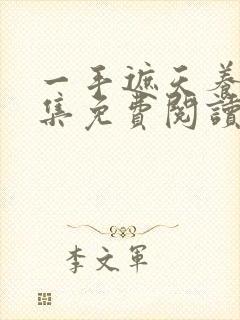 一手遮天養
集免費閱讀
李文軍